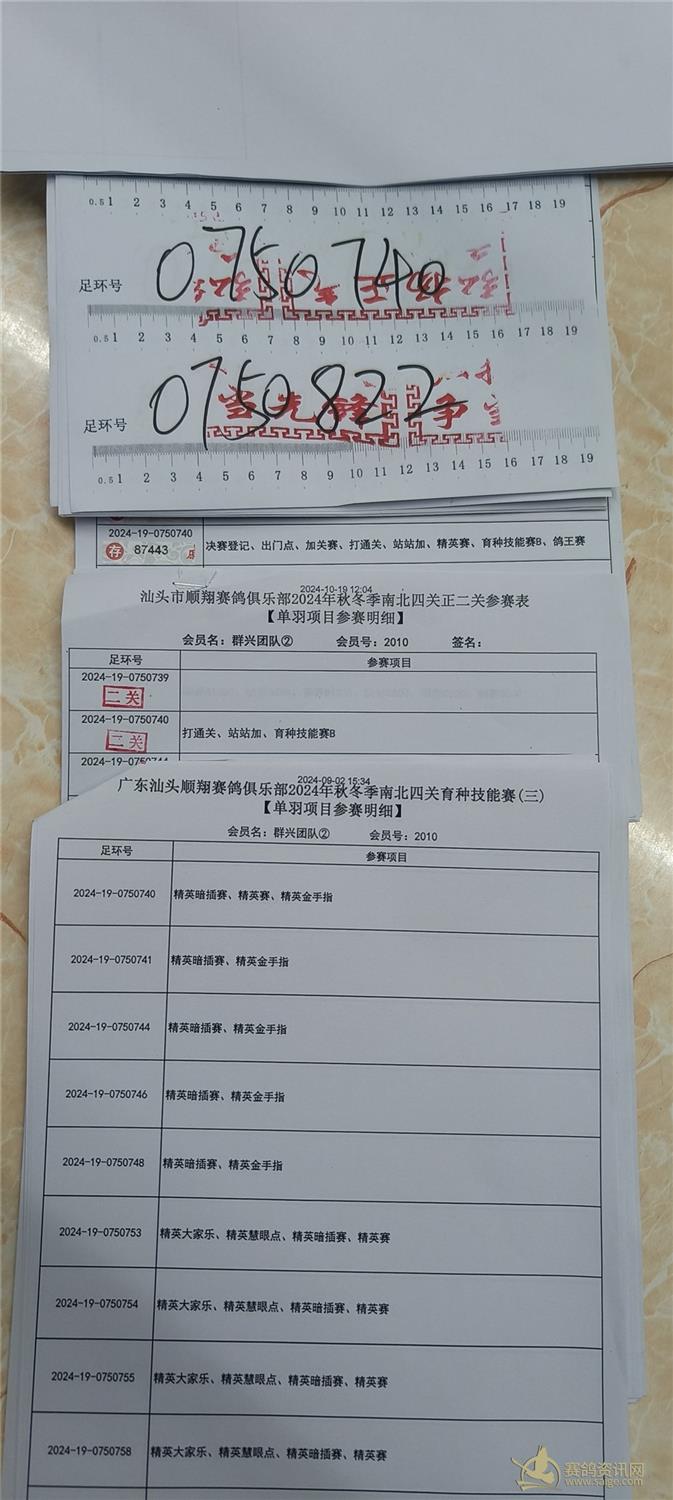 0.5 1 2 3 4 5 6 7 8 9 10 11 12 13 14 15 16 17 18 19
足环号 0750740
0.5 1 2 3 4 5 6 7 8 9 10 11 12 13 14 15 16 17 18 19
足环号 0750822
当先锋 争
0.5 1 2 3 4 5 6 7 8 9 10 11 12 13 14 15 16 17 18 19
2024-19-0750740
存 87443
决赛登记、出门点、加关赛、打通关、站站加、精英赛、育种技能赛B、鸽王赛
2024-10-19 12:04
汕头市顺翔赛鸽俱乐部2024年秋冬季南北四关正二关参赛表
【单羽项目参赛明细】
会员名：群兴团队② 会员号：2010 签名：
足环号 参赛项目
2024-19-0750739
二关
2024-19-0750740
二关
打通关、站站加、育种技能赛B
2024-09-02 15:34
广东汕头顺翔赛鸽俱乐部2024年秋冬季南北四关育种技能赛(三)
【单羽项目参赛明细】
会员名：群兴团队② 会员号：2010
足环号 参赛项目
2024-19-0750740 精英暗插赛、精英赛、精英金手指
2024-19-0750741 精英暗插赛、精英金手指
2024-19-0750744 精英暗插赛、精英金手指
2024-19-0750746 精英暗插赛、精英金手指
2024-19-0750748 精英暗插赛、精英金手指
2024-19-0750753 精英大家乐、精英慧眼点、精英暗插赛、精英赛
2024-19-0750754 精英大家乐、精英慧眼点、精英暗插赛、精英赛
2024-19-0750755 精英大家乐、精英慧眼点、精英暗插赛、精英赛
2024-19-0750758 精英大家乐、精英慧眼点、精英暗插赛、精英赛
赛鸽资讯网
www.saige.com